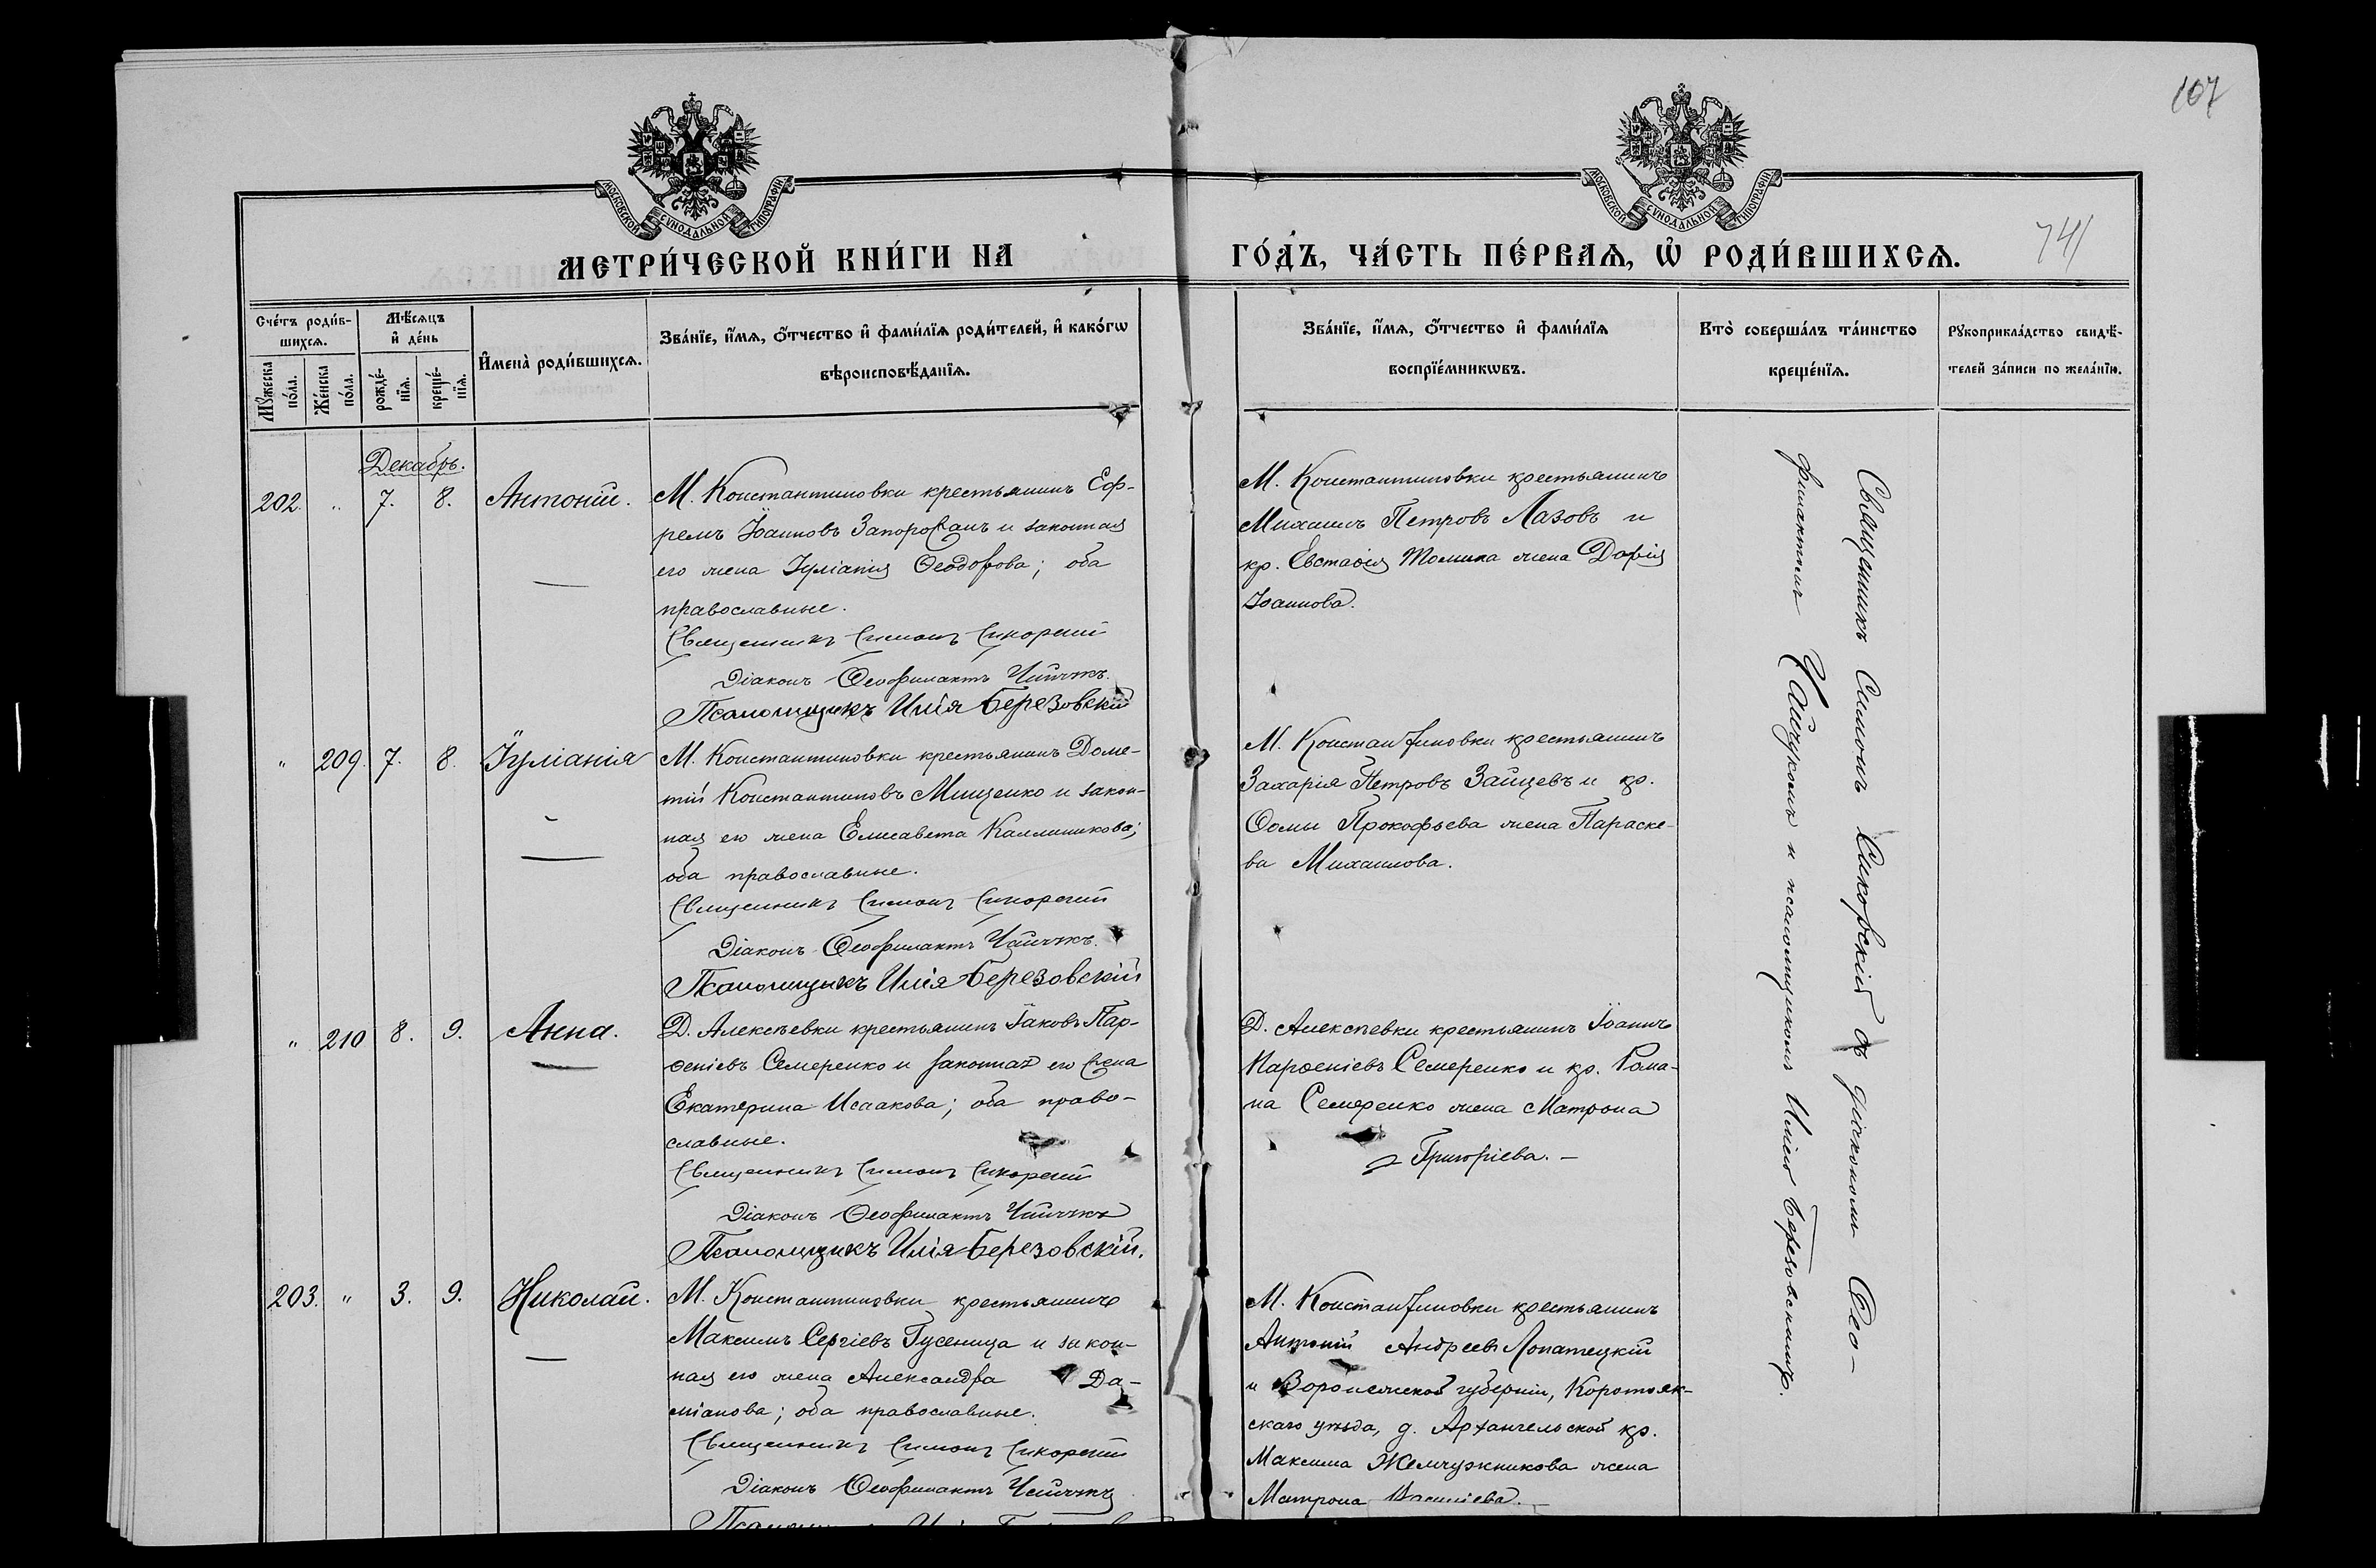 107
МОСКОВСКОЙ СУНОДАЛЬНОЙ ТИПОГРАФІИ
МОСКОВСКОЙ СУНОДАЛЬНОЙ ТИПОГРАФІИ
МЕТРИ́ЧЕСКОЙ КНИ́ГИ НА
ГО́ДЪ, ЧА́СТЬ ПЕ́РВАѦ, Ѡ҆ РОДИ́ВШИХСѦ.
741
Сче́тъ роди́в-
шихсѧ.
Мꙋ́жеска
по́ла.
Же́нска
по́ла.
Мѣ́сѧцъ
и҆ де́нь
рожде́-
нїѧ.
креще́-
нїѧ.
И҆мена̀ роди́вшихсѧ.
Зва́нїе, и҆́мѧ, ѻ҆́тчество и҆ фами́лїѧ роди́телей, и҆ како́гѡ
вѣроисповѣ́данїѧ.
Зва́нїе, и҆́мѧ, ѻ҆́тчество и҆ фами́лїѧ
воспрїе́мникѡвъ.
Кто̀ соверша́лъ та́инство
креще́нїѧ.
Рꙋкоприкла́дство свидѣ́-
телей за́писи по жела́нїю.
Декабрь.
202. " 7. 8. Антоній.
М. Константиновки крестьянинъ Еф-
ремъ Іоанновъ Запорожанъ и законная
его жена Іуліанія Ѳеодорова; оба
православные.
Священникъ Симонъ Сикорскій
Діаконъ Ѳеофилактъ Чайчукъ.
Псаломщикъ Илія Березовскій
М. Константиновки крестьянинъ
Михаилъ Петровъ Лазовъ и
кр. Евстаѳія Томина жена Дарія
Іоаннова.
" 209. 7. 8. Іуліанія
М. Константиновки крестьянинъ Доме-
тій Константиновъ Мищенко и закон-
ная его жена Елисавета Каллиникова;
оба православные.
Священникъ Симонъ Сикорскій
Діаконъ Ѳеофилактъ Чайчукъ.
Псаломщикъ Илія Березовскій
М. Константиновки крестьянинъ
Захарія Петровъ Зайцевъ и кр.
Ѳомы Прокофьева жена Параске-
ва Михаилова.
" 210 8. 9. Анна.
Д. Алексѣевки крестьянинъ Іаковъ Пар-
ѳеніевъ Семеренко и законная его жена
Екатерина Исаакова; оба право-
славные.
Священникъ Симонъ Сикорскій
Діаконъ Ѳеофилактъ Чайчукъ
Псаломщикъ Илія Березовскій.
Д. Алексѣевки крестьянинъ Іоаннъ
Парѳеніевъ Семеренко и кр. Рома-
на Семеренко жена Матрона
Григоріева. –
203. " 3. 9. Николай.
М. Константиновки крестьянинъ
Максимъ Сергіевъ Гусеница и закон-
ная его жена Александра Да-
міанова; оба православные.
Священникъ Симонъ Сикорскій
Діаконъ Ѳеофилактъ Чайчукъ
М. Константиновки крестьянинъ
Антоній Андреевъ Лопатецкій
и Воронежской губерніи, Коротояк-
скаго уѣзда, д. Архангельской кр.
Максима Жемчужникова жена
Матрона Василіева. –
Священникъ Симонъ Сикорскій съ діакономъ Ѳео-
филактомъ Чайчукомъ и псаломщикомъ Иліею Березовскимъ.